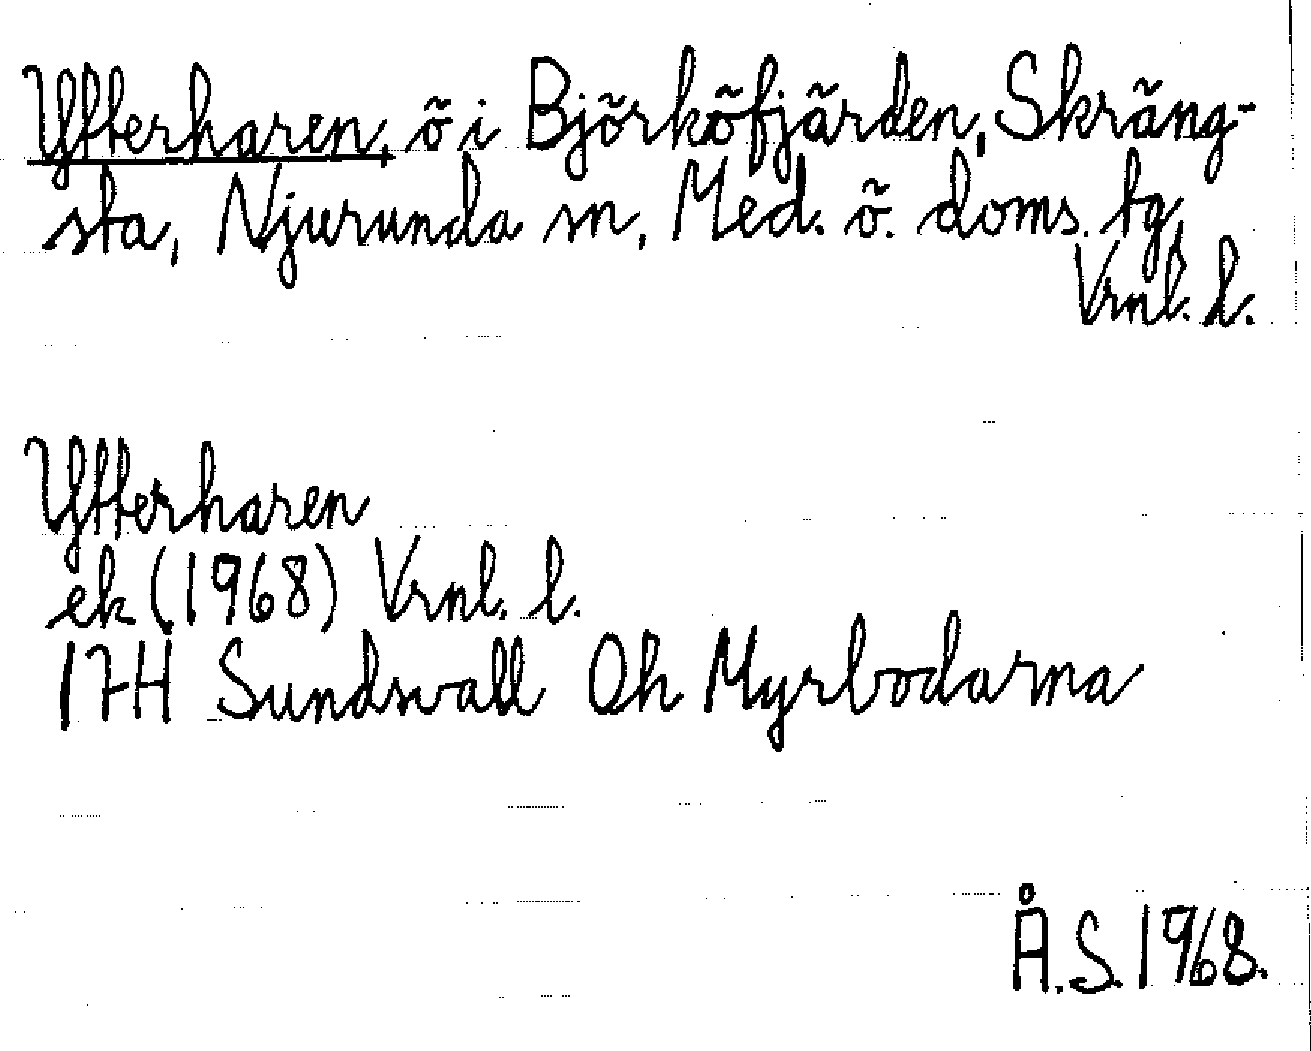 Ytterharen, ö i Björköfjärden, Skräng-
sta, Njurunda sn, Med. ö. doms. tg,
Vrnl. l.
Ytterharen
ek (1968) Vrnl. l.
17H Sundsvall 0h Myrbodarna
Å.S. 1968.